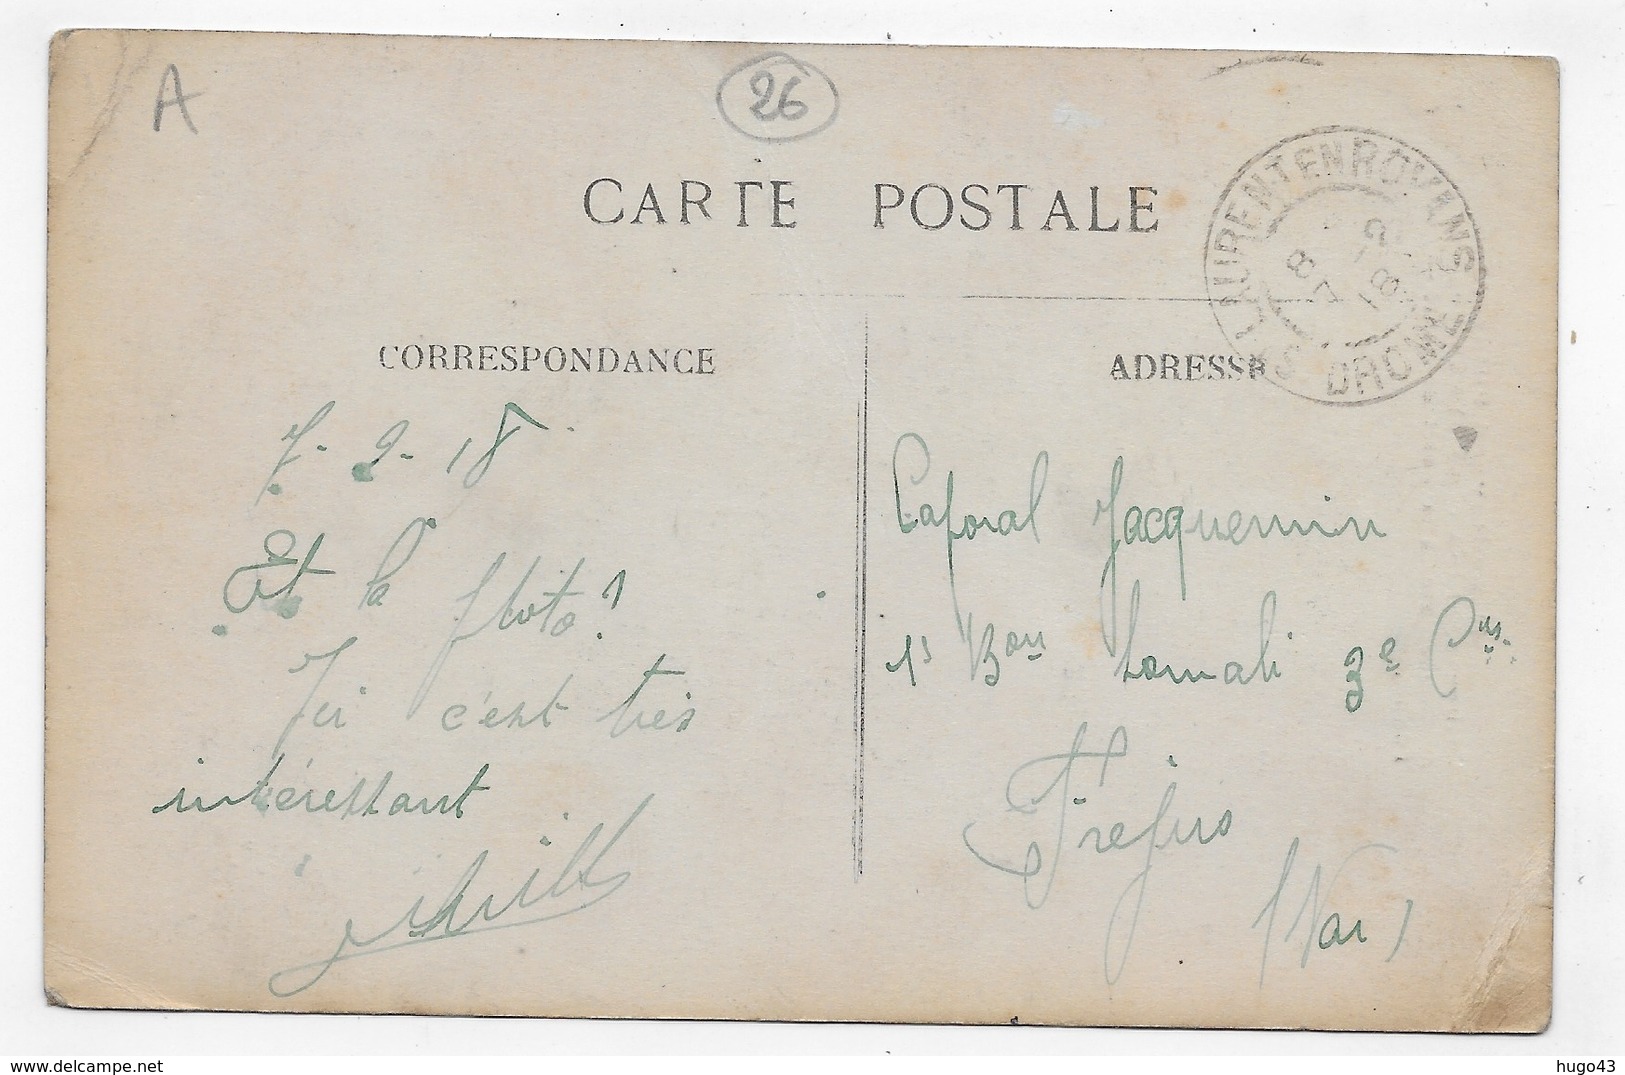 A
26
CARTE POSTALE
ST LAURENT EN ROYANS
8 7 - 2 18
DROME
CORRESPONDANCE
7-2-18
Et la photo?
Ici c'est très
intéressant
ADRESSE
Caporal Jacquemin
1er Bon Somali 3e Cie
Frejus
(Var)
hugo43